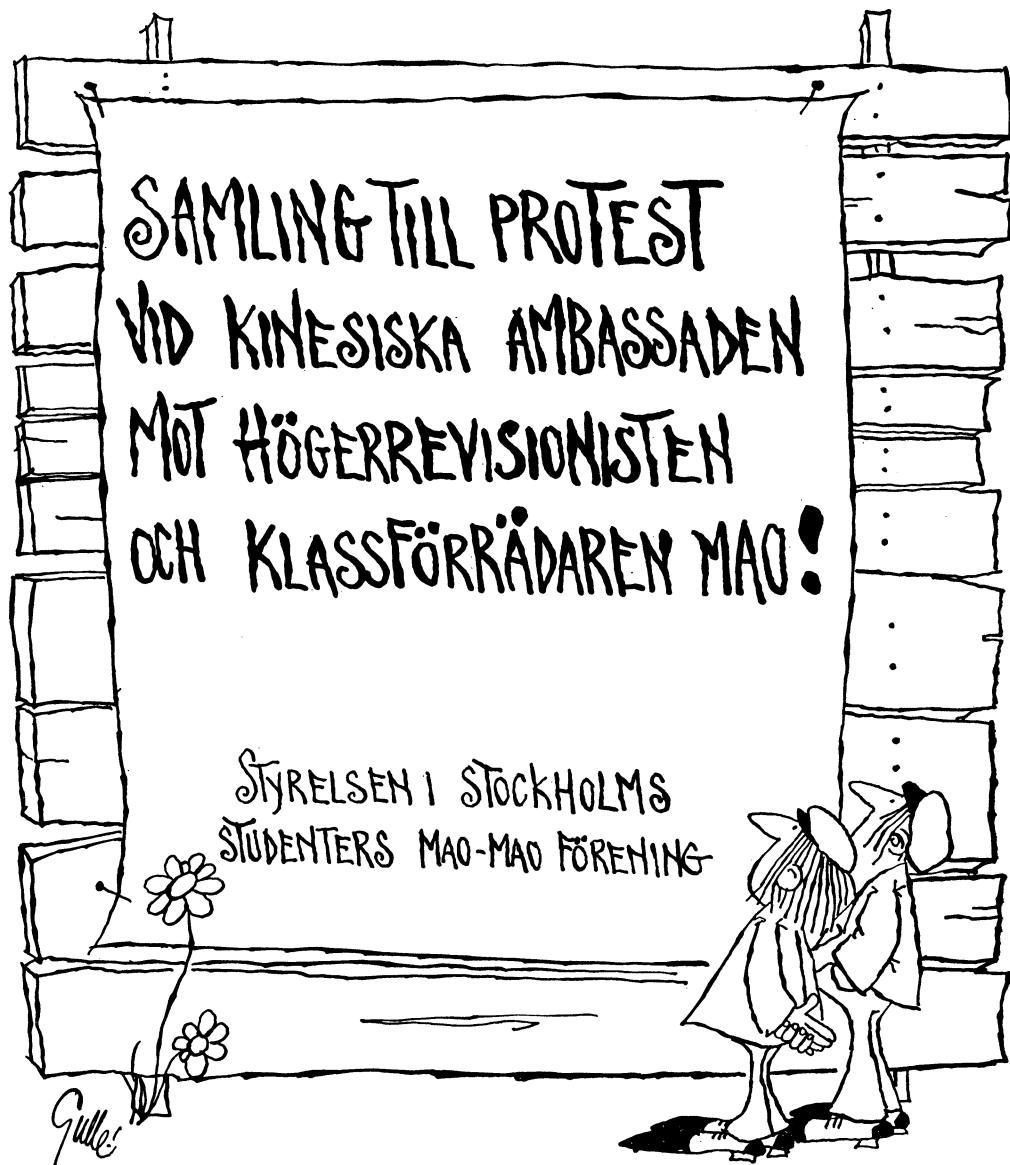 SAMLING TILL PROTEST
VID KINESISKA AMBASSADEN
MOT HÖGERREVISIONISTEN
OCH KLASSFÖRRÄDAREN MAO!
STYRELSEN I STOCKHOLMS
STUDENTERS MAO-MAO FÖRENING